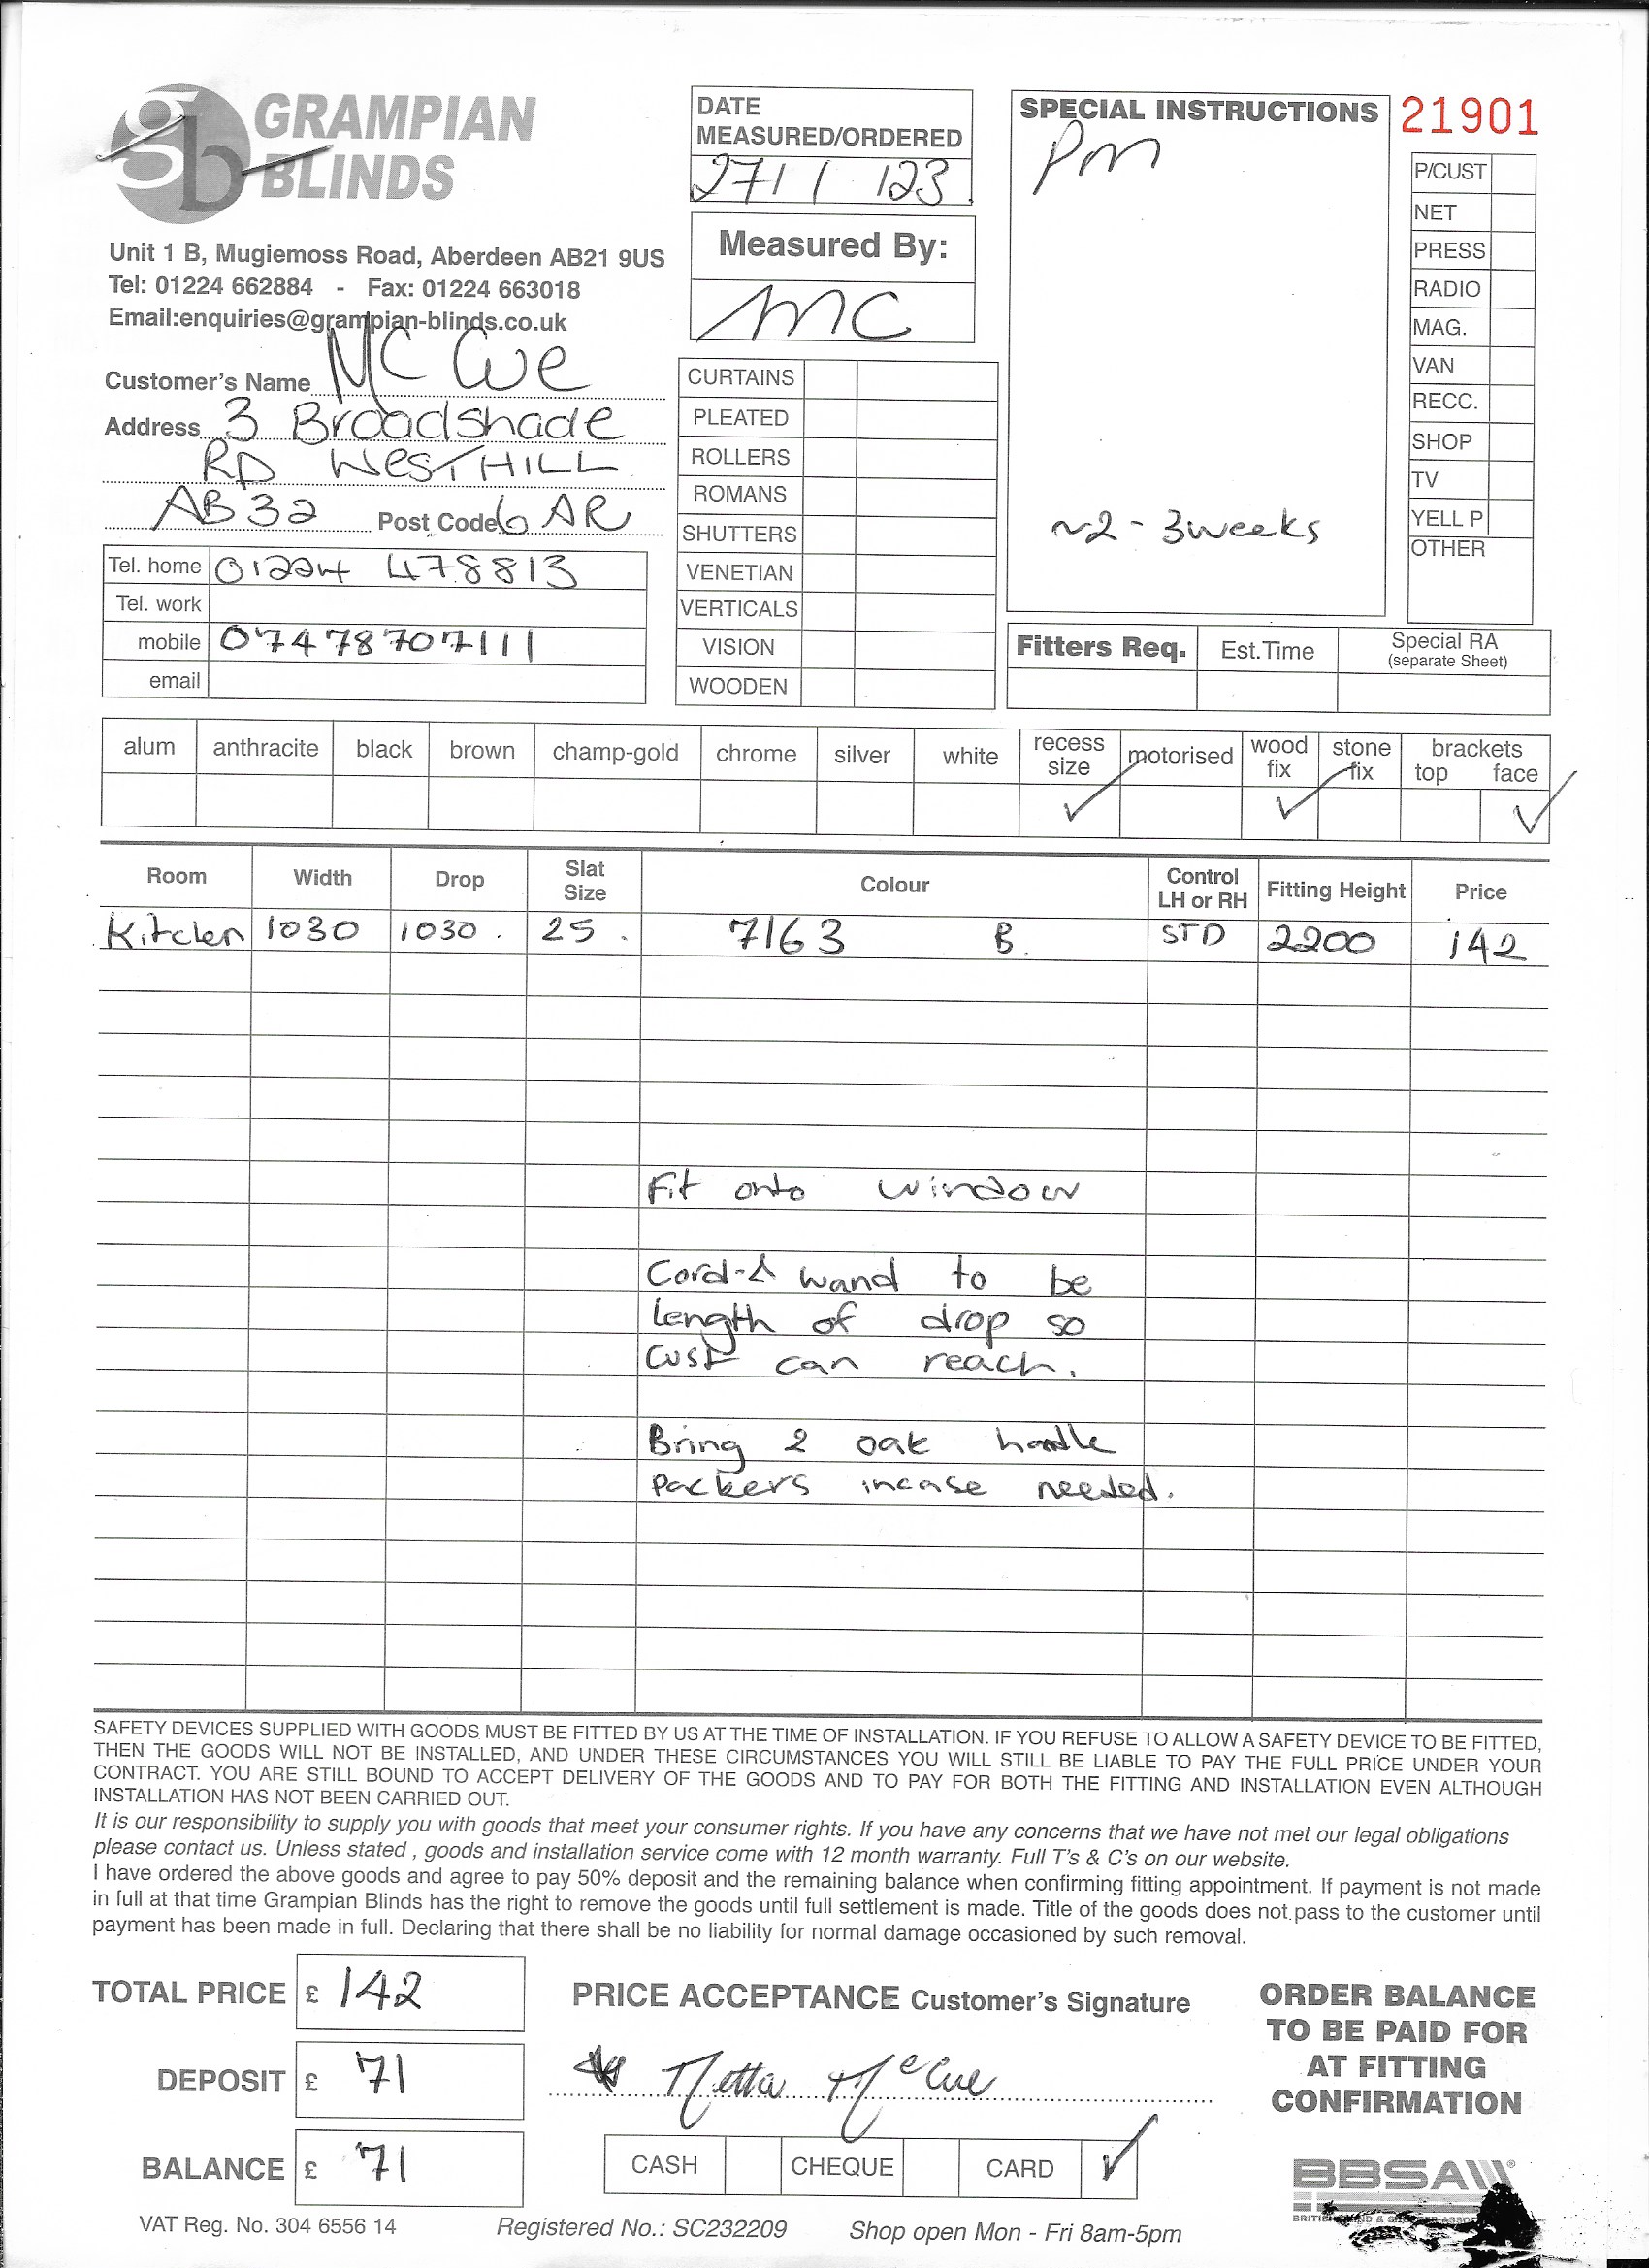 GRAMPIAN
BLINDS
Unit 1 B, Mugiemoss Road, Aberdeen AB21 9US
Tel: 01224 662884 - Fax: 01224 663018
Email:enquiries@grampian-blinds.co.uk
Customer's Name MC Cue
Address 3 Broadshade
RD WESTHILL
AB32 Post Code 6 AR
Tel. home 01224 478813
Tel. work
mobile 07478707111
email
DATE
MEASURED/ORDERED
27/1/23
Measured By:
MC
CURTAINS
PLEATED
ROLLERS
ROMANS
SHUTTERS
VENETIAN
VERTICALS
VISION
WOODEN
SPECIAL INSTRUCTIONS
Pm
~2-3weeks
21901
P/CUST
NET
PRESS
RADIO
MAG.
VAN
RECC.
SHOP
TV
YELL P
OTHER
Fitters Req. Est.Time Special RA
(separate Sheet)
alum anthracite black brown champ-gold chrome silver white recess size motorised wood fix stone fix brackets top face
Room Width Drop Slat Size Colour Control LH or RH Fitting Height Price
Kitchen 1030 1030. 25. 7163 B. STD 2200 142
Fit onto window
Cord-& wand to be
length of drop so
cust can reach.
Bring 2 oak handle
packers incase needed.
SAFETY DEVICES SUPPLIED WITH GOODS MUST BE FITTED BY US AT THE TIME OF INSTALLATION. IF YOU REFUSE TO ALLOW A SAFETY DEVICE TO BE FITTED,
THEN THE GOODS WILL NOT BE INSTALLED, AND UNDER THESE CIRCUMSTANCES YOU WILL STILL BE LIABLE TO PAY THE FULL PRICE UNDER YOUR
CONTRACT. YOU ARE STILL BOUND TO ACCEPT DELIVERY OF THE GOODS AND TO PAY FOR BOTH THE FITTING AND INSTALLATION EVEN ALTHOUGH
INSTALLATION HAS NOT BEEN CARRIED OUT.
It is our responsibility to supply you with goods that meet your consumer rights. If you have any concerns that we have not met our legal obligations
please contact us. Unless stated , goods and installation service come with 12 month warranty. Full T's & C's on our website.
I have ordered the above goods and agree to pay 50% deposit and the remaining balance when confirming fitting appointment. If payment is not made
in full at that time Grampian Blinds has the right to remove the goods until full settlement is made. Title of the goods does not pass to the customer until
payment has been made in full. Declaring that there shall be no liability for normal damage occasioned by such removal.
TOTAL PRICE £ 142
DEPOSIT £ 71
BALANCE £ 71
PRICE ACCEPTANCE Customer's Signature
Netta McCue
CASH CHEQUE CARD ✓
ORDER BALANCE
TO BE PAID FOR
AT FITTING
CONFIRMATION
BBSA
VAT Reg. No. 304 6556 14 Registered No.: SC232209 Shop open Mon - Fri 8am-5pm